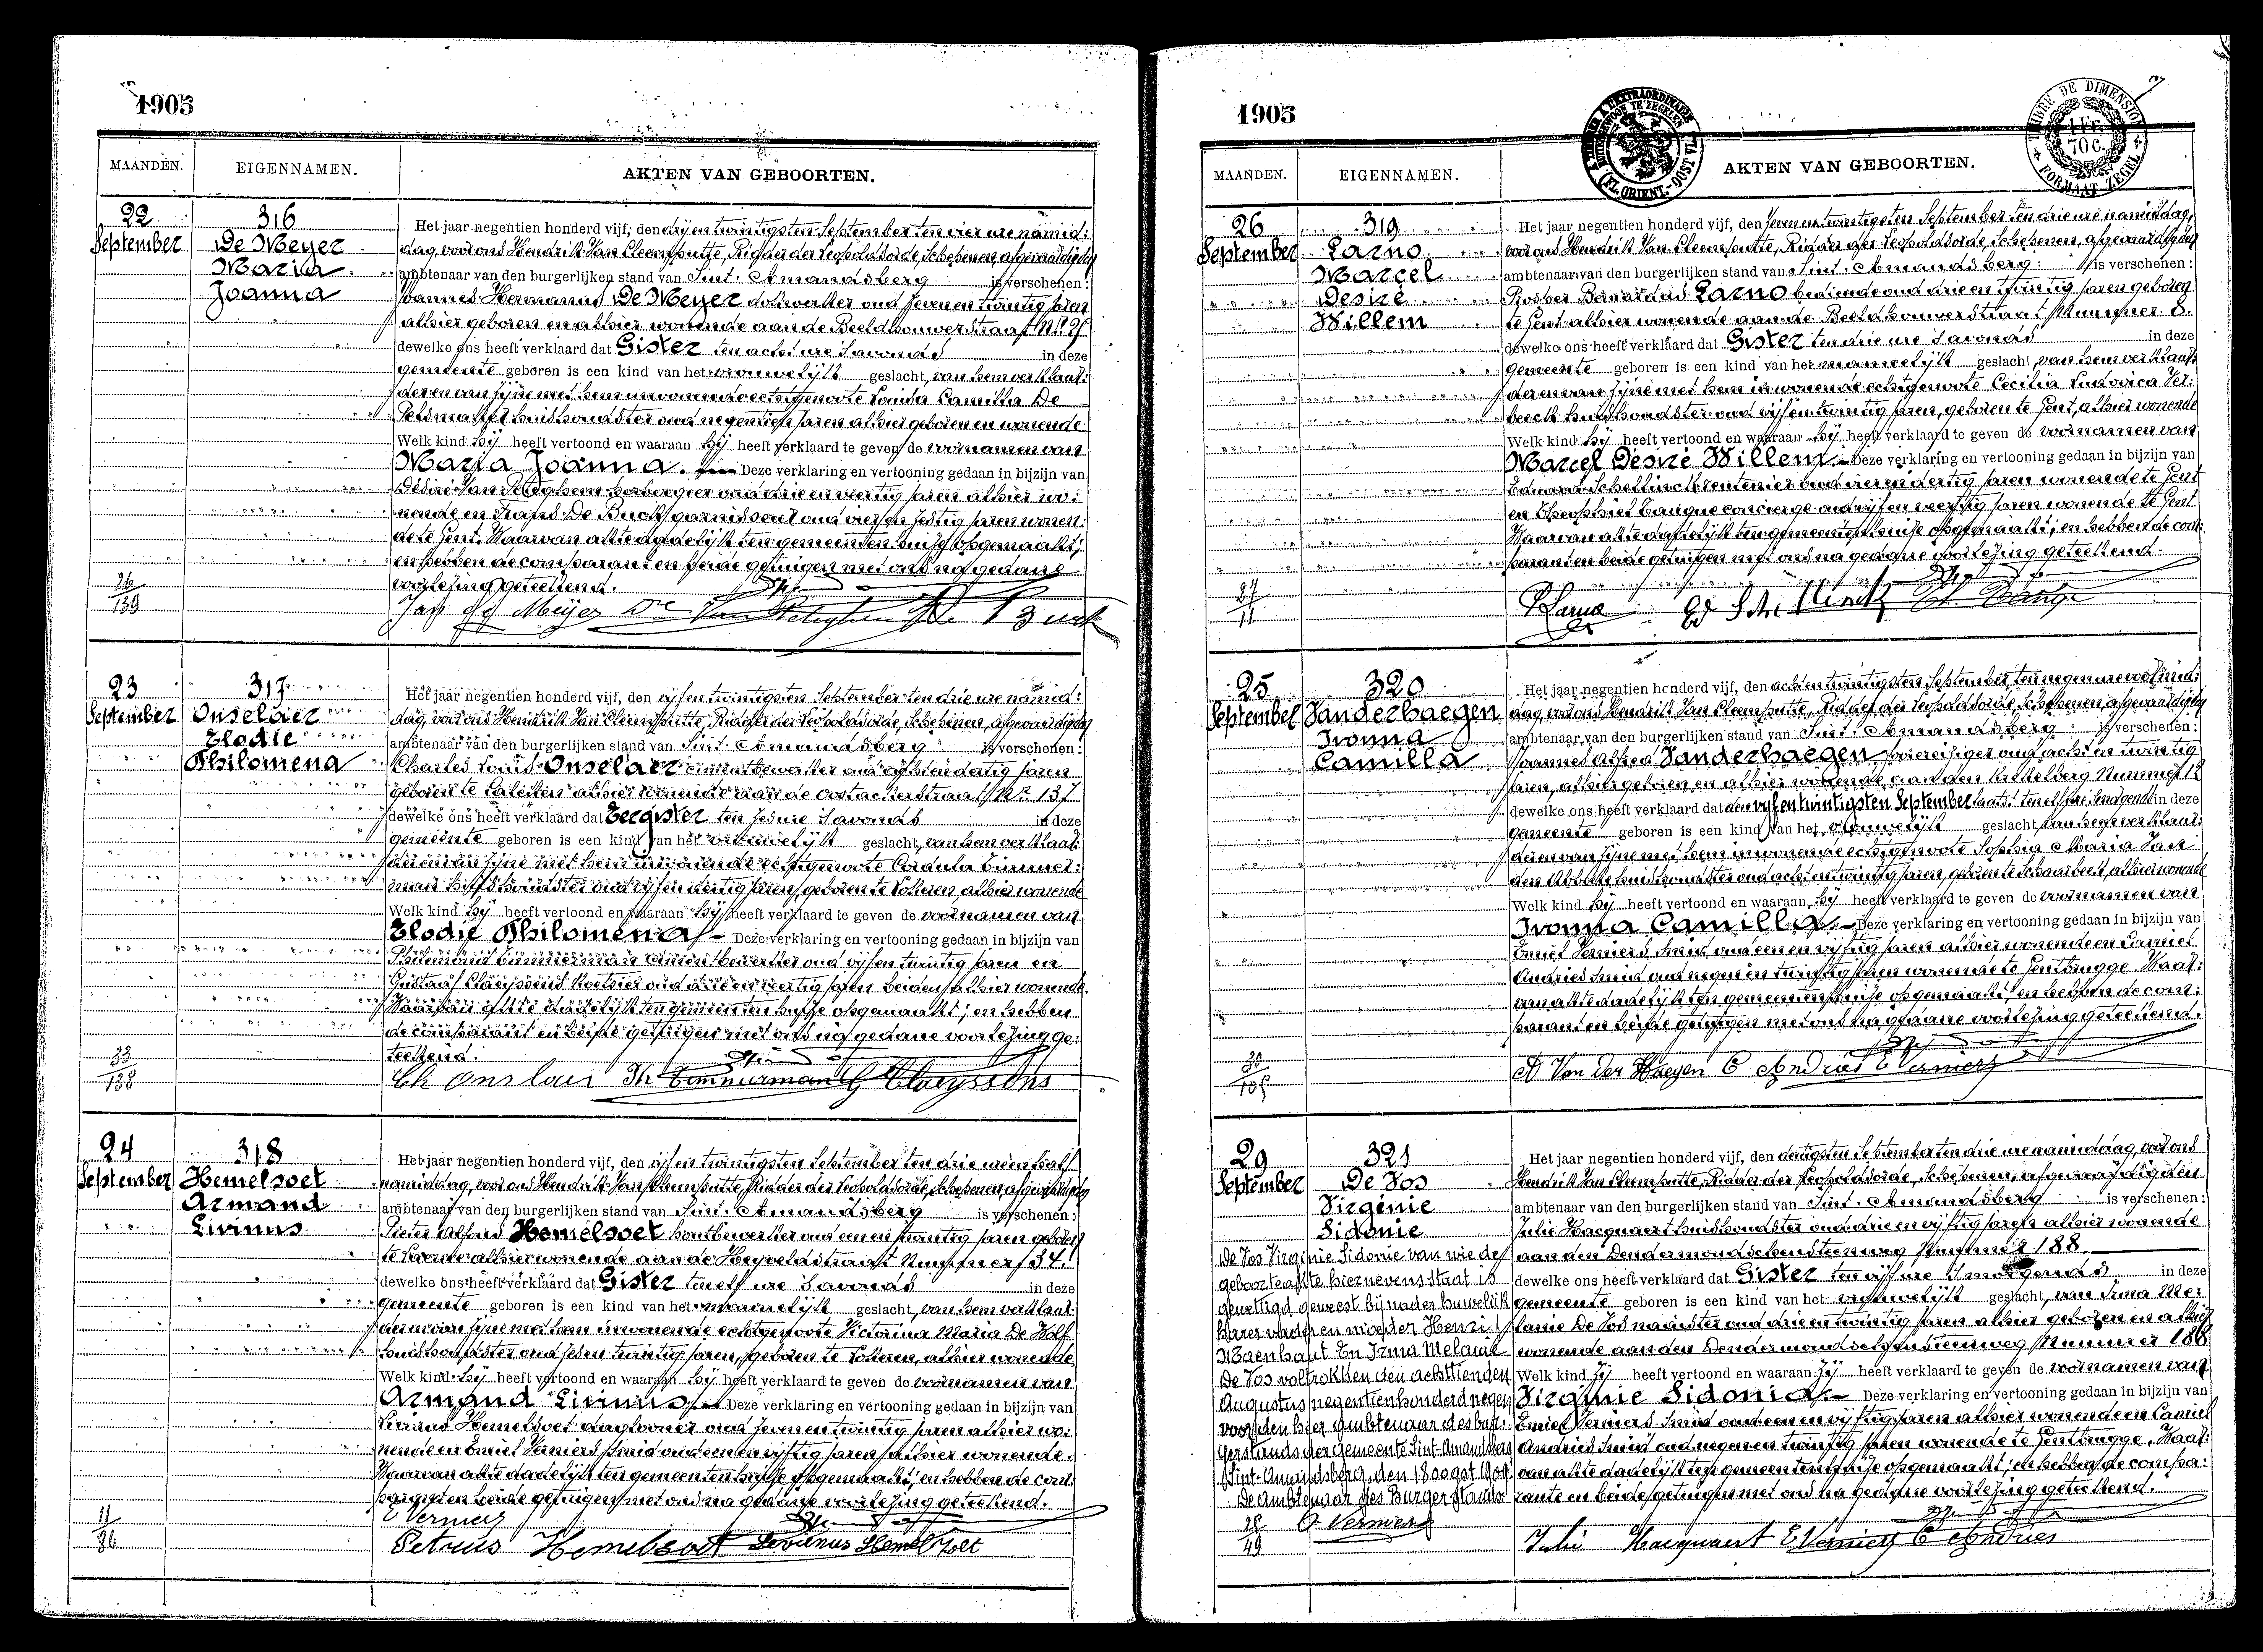 1905
MAANDEN. EIGENNAMEN. AKTEN VAN GEBOORTEN.
22 September
316
De Meyer
Maria
Joanna
Het jaar negentien honderd vijf, den dry en twintigsten September ten vier ure namid:
dag, voor ons Hendrik Van Cleemputte, Ridder der Leopoldsorde, Schepenen, afgevaardigden
ambtenaar van den burgerlijken stand van Sint-Amandsberg is verschenen:
Joannes Hermanus De Meyer dokwerker oud zeven en twintig jaren
alhier geboren en alhier wonende aan de Beeldhouwerstraat
dewelke ons heeft verklaard dat Gister ten acht ure 's avonds in deze
gemeente geboren is een kind van het vrouwelijk geslacht, van hem verklaar:
der en van zijne met hem inwonende echtgenoote Louisa Camilla De
Pelsmaker huishoudster oud negentien jaren alhier geboren en wonende.
Welk kind hij heeft vertoond en waaraan hij heeft verklaard te geven de voornamen van
Maria Joanna. Deze verklaring en vertooning gedaan in bijzijn van
Désiré Van herbergier oud drie en veertig jaren alhier wo:
nende en Frans De Buck garnisseur oud vier en zestig jaren wonen:
de te Gent. Waarvan akte dadelijk ten gemeentenhuize opgemaakt;
en hebben de comparant en beide getuigen met ons na gedane
voorlezing geteekend.
26/139
23 September
317
Onselaer
Elodie
Philomena
Het jaar negentien honderd vijf, den vijf en twintigsten September ten drie ure namid:
dag, voor ons Hendrik Van Cleemputte, Ridder der Leopoldsorde, Schepenen, afgevaardigden
ambtenaar van den burgerlijken stand van Sint-Amandsberg is verschenen:
Charles Louis Onselaer cimentbewerker oud en dertig jaren
geboren te alhier wonende aan de Oostackerstraat Nr 137
dewelke ons heeft verklaard dat Eergister ten zes ure 's avonds in deze
gemeente geboren is een kind van het vrouwelijk geslacht, van hem verklaar:
der en van zijne met hem inwonende echtgenoote Cordula Timmer:
man huishoudster oud vijf en dertig jaren, geboren te Lokeren alhier wonende
Welk kind hij heeft vertoond en waaraan hij heeft verklaard te geven de voornamen van
Elodie Philomena. Deze verklaring en vertooning gedaan in bijzijn van
Timmerman cimentbewerker oud vijf en twintig jaren en
Gustaaf Claeyssens koetsier oud drie en veertig jaren beiden alhier wonende.
Waarvan akte dadelijk ten gemeentenhuize opgemaakt; en hebben
de comparant en beide getuigen met ons na gedane voorlezing ge:
teekend.
Th Timmerman G Claeyssens
32/138
24 September
318
Hemelsoet
Armand
Livinus
Het jaar negentien honderd vijf, den vijf en twintigsten September ten drie uren half
namiddag, voor ons Hendrik Van Cleemputte, Ridder der Leopoldsorde, Schepenen, afgevaardigden
ambtenaar van den burgerlijken stand van Sint-Amandsberg is verschenen:
Pieter Alfons Hemelsoet houtbewerker oud een en twintig jaren geboren
te alhier wonende aan de Heyveldstraat Nummer 34.
dewelke ons heeft verklaard dat Gister ten elf ure 's avonds in deze
gemeente geboren is een kind van het mannelijk geslacht, van hem verklaar:
der en van zijne met hem inwonende echtgenoote Victorina Maria De Wolf
huishoudster oud zes en twintig jaren, geboren te Lokeren, alhier wonende
Welk kind hij heeft vertoond en waaraan hij heeft verklaard te geven de voornamen van
Armand Livinus. Deze verklaring en vertooning gedaan in bijzijn van
Livinus Hemelsoet daglooner oud zeven en twintig jaren alhier wo:
nende en Emiel Verniers smid oud een en vijftig jaren alhier wonende.
Waarvan akte dadelijk ten gemeentenhuize opgemaakt; en hebben de com:
paranten beide getuigen met ons na gedane voorlezing geteekend.
E Verniers
Petrus Hemelsoet Levienus Hemelsoet
11/86
1905
TIMBRE DE DIMENSION
1 Fr. 70 c.
FORMAAT ZEGEL
(FL. ORIENT.-OOST VL.)
MAANDEN. EIGENNAMEN. AKTEN VAN GEBOORTEN.
26 September
319
Larno
Marcel
Desiré
Willem
Het jaar negentien honderd vijf, den zeven en twintigsten September ten drie ure namiddag,
voor ons Hendrik Van Cleemputte, Ridder der Leopoldsorde, Schepenen, afgevaardigden
ambtenaar van den burgerlijken stand van Sint-Amandsberg is verschenen:
Prosper Bernardus Larno bediende oud drie en twintig jaren geboren
te Gent alhier wonende aan de Beeldhouwerstraat Nummer 8.
dewelke ons heeft verklaard dat Gister ten drie ure 's avonds in deze
gemeente geboren is een kind van het mannelijk geslacht, van hem verklaar:
der en van zijne met hem inwonende echtgenoote Cecilia Ludovica Ver:
beeck huishoudster oud vijf en twintig jaren, geboren te Gent, alhier wonende
Welk kind hij heeft vertoond en waaraan hij heeft verklaard te geven de voornamen van
Marcel Desiré Willem. Deze verklaring en vertooning gedaan in bijzijn van
Eduard Schellinck rentenier oud vier en dertig jaren wonende te Gent
en Theophiel Tanghe concierge oud vijf en veertig jaren wonende te Gent.
Waarvan akte dadelijk ten gemeentenhuize opgemaakt; en hebben de com:
parant en beide getuigen met ons na gedane voorlezing geteekend.
27/11
25 September
320
Vanderhaegen
Ivonna
Camilla
Het jaar negentien honderd vijf, den acht en twintigsten September ten negen ure voormid:
dag, voor ons Hendrik Van Cleemputte, Ridder der Leopoldsorde, Schepenen, afgevaardigden
ambtenaar van den burgerlijken stand van Sint-Amandsberg is verschenen:
Joannes Alfred Vanderhaegen handelsreiziger oud acht en twintig
jaren, alhier geboren en alhier wonende aan den Nummer 12
dewelke ons heeft verklaard dat den vijf en twintigsten September laatst ten elf ure 's morgens in deze
gemeente geboren is een kind van het vrouwelijk geslacht, van hem verklaar:
der en van zijne met hem inwonende echtgenoote Sophia Maria Van
den huishoudster oud acht en twintig jaren, geboren te Schaarbeek, alhier wonende
Welk kind hij heeft vertoond en waaraan hij heeft verklaard te geven de voornamen van
Ivonna Camilla. Deze verklaring en vertooning gedaan in bijzijn van
Emiel Verniers smid, oud een en vijftig jaren alhier wonende en Camiel
Andries smid oud negen en twintig jaren wonende te Gentbrugge. Waar:
van akte dadelijk ten gemeentenhuize opgemaakt; en hebben de com:
parant en beide getuigen met ons na gedane voorlezing geteekend.
A Van der Haegen C Andries E Verniers
30/105
29 September
321
De Vos
Virginie
Sidonie
Het jaar negentien honderd vijf, den dertigsten September ten drie ure namiddag, voor ons
Hendrik Van Cleemputte, Ridder der Leopoldsorde, Schepenen, afgevaardigden
ambtenaar van den burgerlijken stand van Sint-Amandsberg is verschenen:
Julie Hacquaert huishoudster oud drie en vijftig jaren alhier wonende
aan den Dendermondschensteenweg Nummer 188
dewelke ons heeft verklaard dat Gister ten vijf ure 's morgends in deze
gemeente geboren is een kind van het vrouwelijk geslacht, van Irma Me:
lanie De Vos naaister oud drie en twintig jaren alhier geboren en alhier
wonende aan den Dendermondschensteenweg Nummer 188
Welk kind zij heeft vertoond en waaraan zij heeft verklaard te geven de voornamen van
Virginie Sidonie. Deze verklaring en vertooning gedaan in bijzijn van
Emiel Verniers smid oud een en vijftig jaren alhier wonende en Camiel
Andries smid oud negen en twintig jaren wonende te Gentbrugge. Waar:
van akte dadelijk ten gemeentenhuize opgemaakt; en hebben de compa:
rante en beide getuigen met ons na gedane voorlezing geteekend.
Julie Hacquaert E Verniers C Andries
De Vos Virginie Sidonie van wie de
geboorteakte hiernevens staat is
gewettigd geweest bij nader huwelijk
harer vader en moeder Henri
Maenhaut En Irma Melanie
De Vos voltrokken den achttienden
Augustus negentienhonderd negen
voor den heer ambtenaar des bur:
gerstands der gemeente Sint-Amandsberg
Sint-Amandsberg, den 18 oogst 1909
De Ambtenaar des Burgerstands
Verniers
28/49